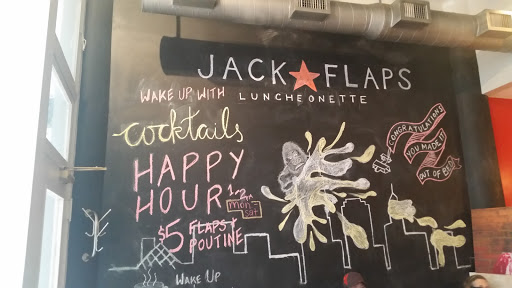 JACK★FLAPS
LUNCHEONETTE
WAKE UP WITH
cocktails
HAPPY
HOUR
mon
sat
$5 FLAPSY
POUTINE
WAKE UP
CONGRATULATIONS
YOU MADE IT
OUT OF BED!